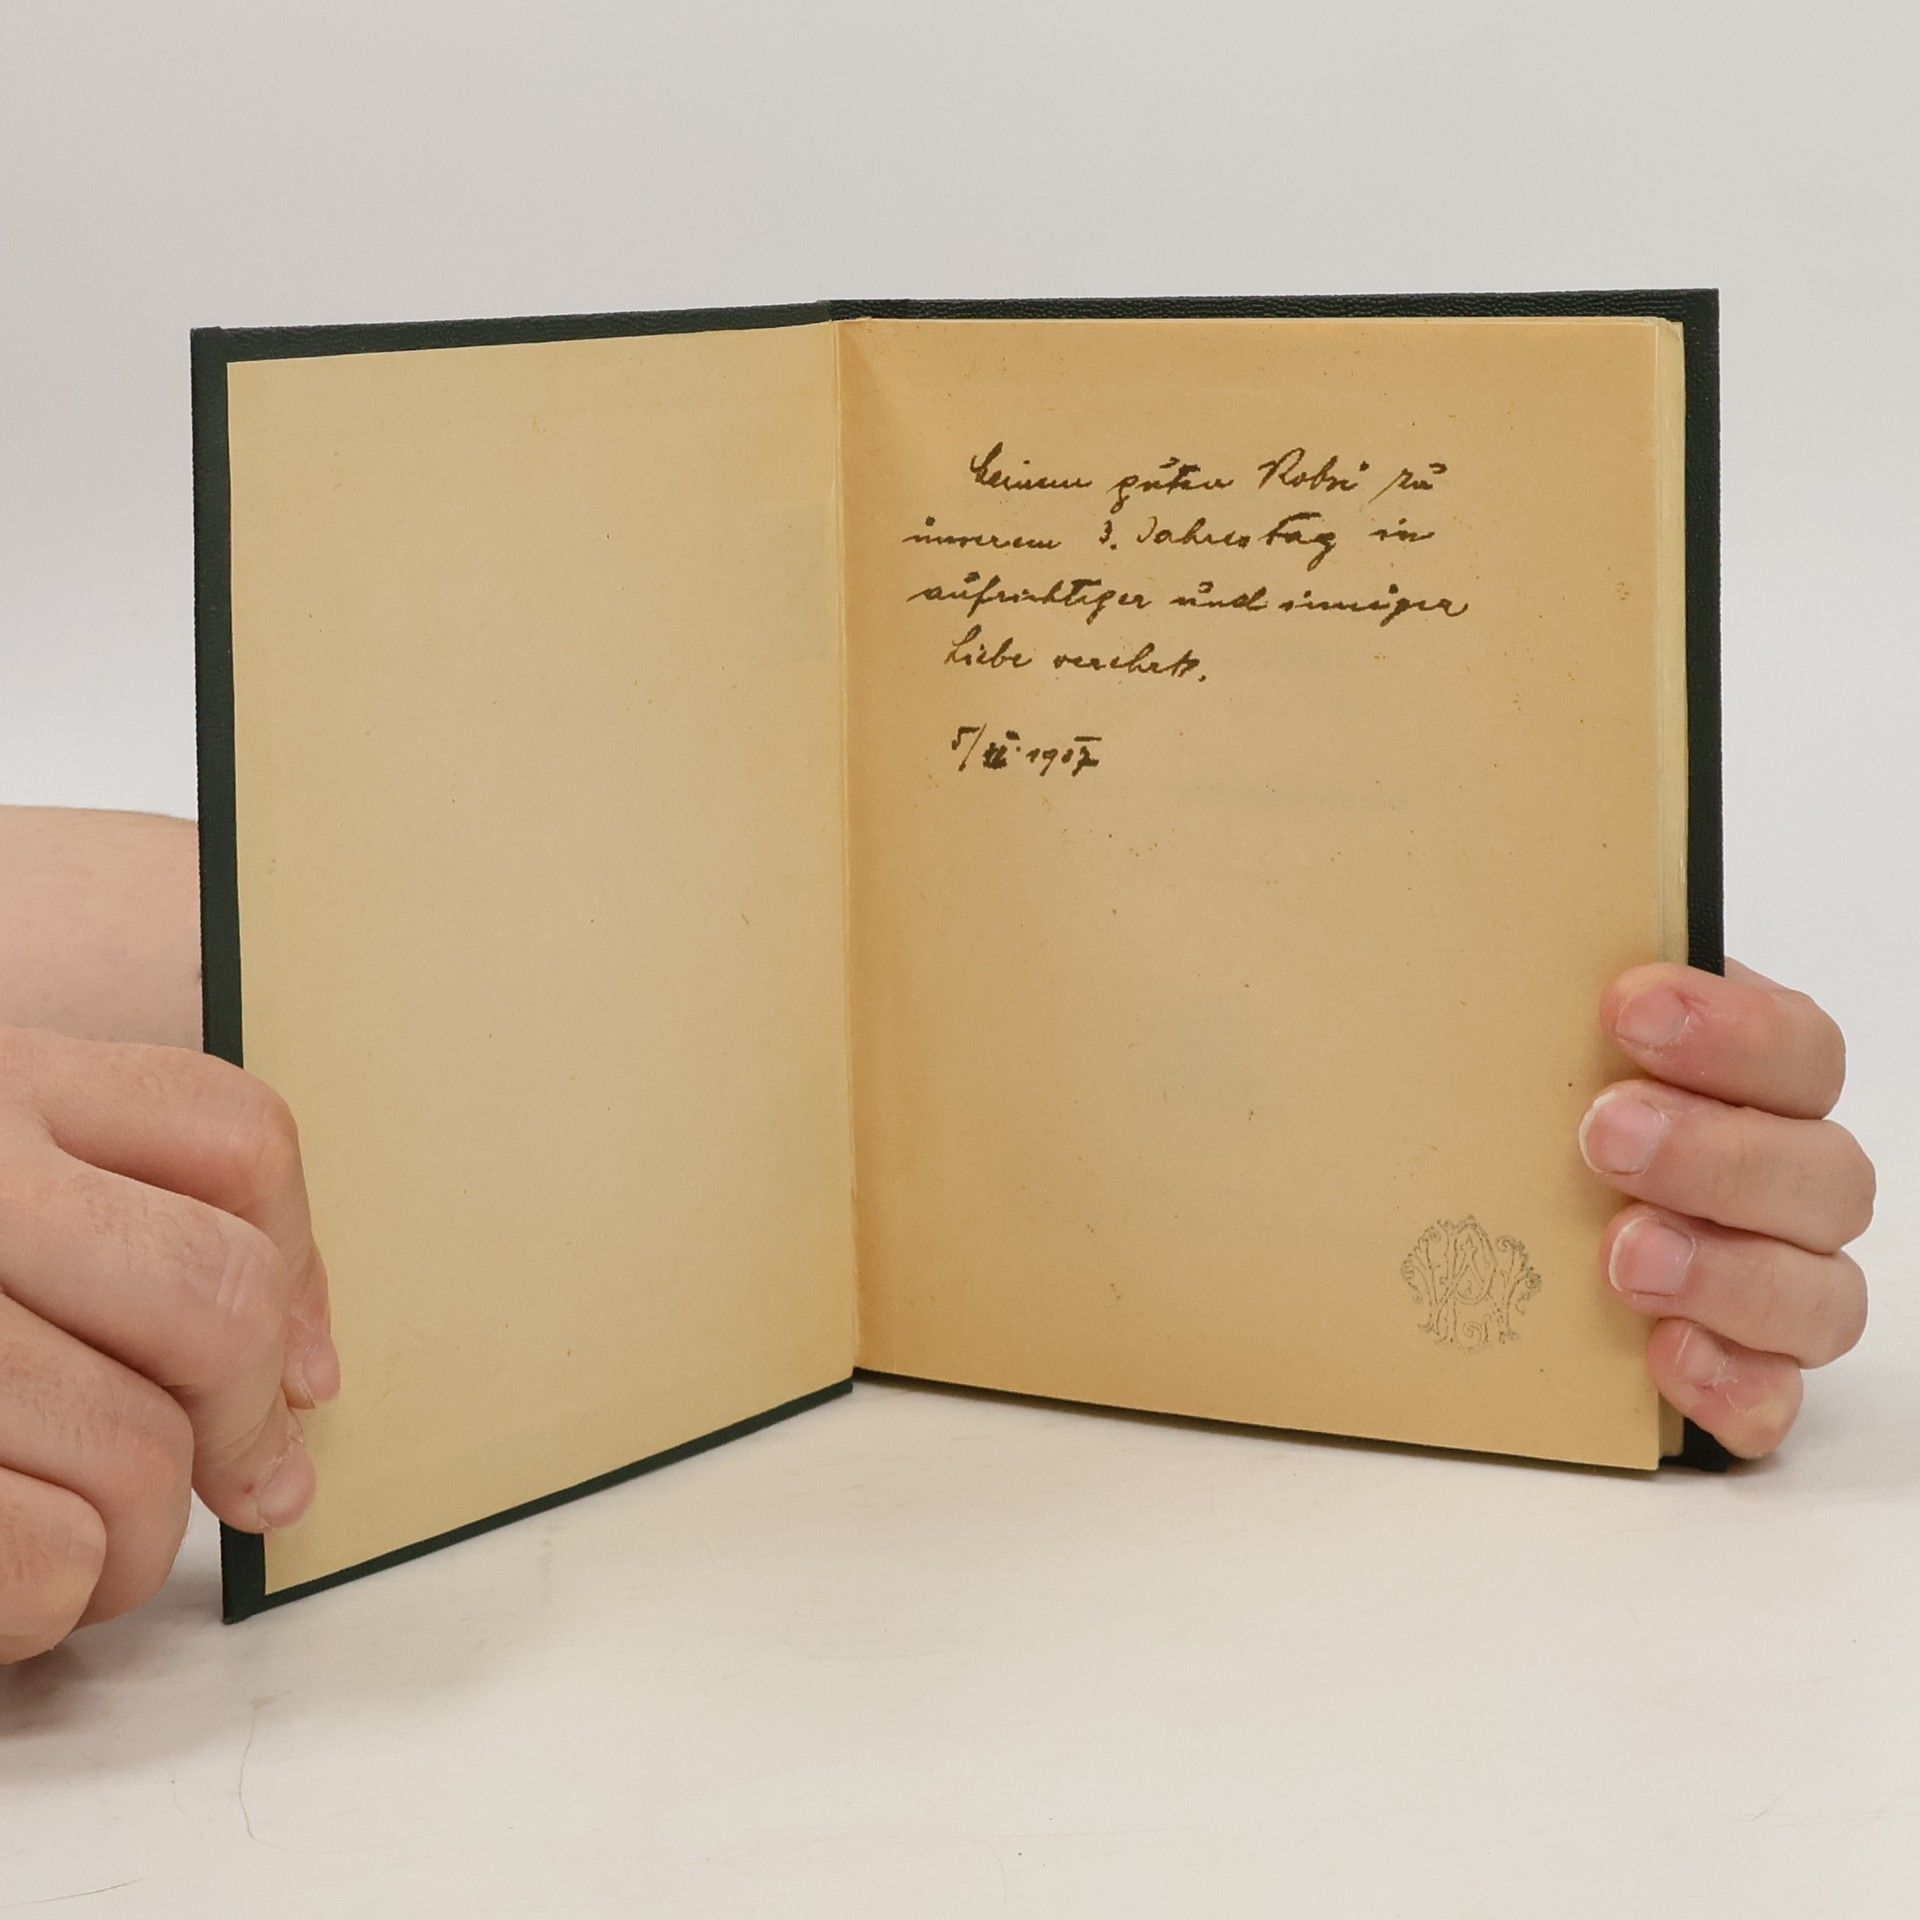 Seinem guten Robsi zu
unserem 3. Jahrestag in
aufrichtiger und inniger
Liebe verehrt.
5/II. 1917